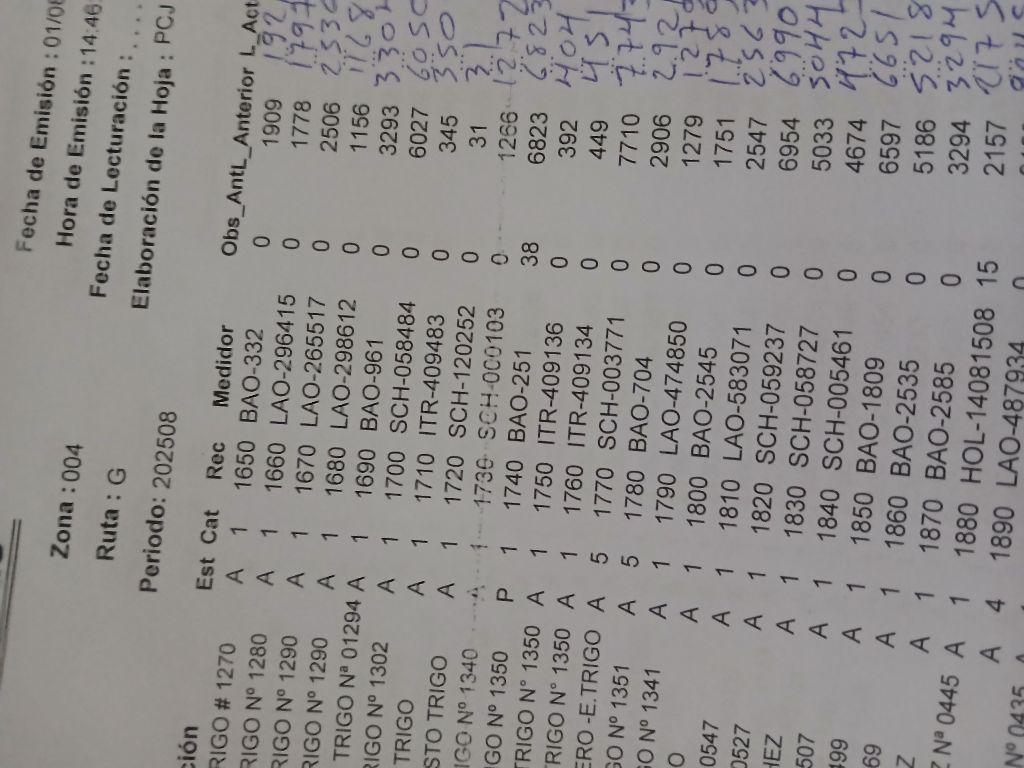 Fecha de Emisión : 01/08
Hora de Emisión : 14:46:
Zona : 004 Fecha de Lecturación : . . . .
Ruta : G Elaboración de la Hoja : PCJ
Periodo: 202508
ción Est Cat Rec Medidor Obs_AntL_Anterior L_Act
RIGO # 1270 A 1 1650 BAO-332 0 1909 192
RIGO Nº 1280 A 1 1660 LAO-296415 0 1778 1797
RIGO Nº 1290 A 1 1670 LAO-265517 0 2506 2536
RIGO Nº 1290 A 1 1680 LAO-298612 0 1156 1168
TRIGO Nª 01294 A 1 1690 BAO-961 0 3293 3304
RIGO Nº 1302 A 1 1700 SCH-058484 0 6027 6050
TRIGO A 1 1710 ITR-409483 0 345 350
STO TRIGO A 1 1720 SCH-120252 0 31 31
IGO Nº 1340 A 1 1730 SCH-000103 0 1266 1272
IGO Nº 1350 P 1 1740 BAO-251 38 6823 6823
TRIGO N° 1350 A 1 1750 ITR-409136 0 392 404
TRIGO N° 1350 A 1 1760 ITR-409134 0 449 451
ERO -E.TRIGO A 5 1770 SCH-003771 0 7710 7743
GO Nº 1351 A 5 1780 BAO-704 0 2906 292
GO Nº 1341 A 1 1790 LAO-474850 0 1279 1279
O A 1 1800 BAO-2545 0 1751 1789
0547 A 1 1810 LAO-583071 0 2547 2563
0527 A 1 1820 SCH-059237 0 6954 6990
HEZ A 1 1830 SCH-058727 0 5033 5044
507 A 1 1840 SCH-005461 0 4674 472
499 A 1 1850 BAO-1809 0 6597 6651
69 A 1 1860 BAO-2535 0 5186 5218
Z A 1 1870 BAO-2585 0 3294 3294
Z Nª 0445 A 1 1880 HOL-14081508 15 2157 2175
A 4 1890 LAO-487934 0
Nº 0435 A